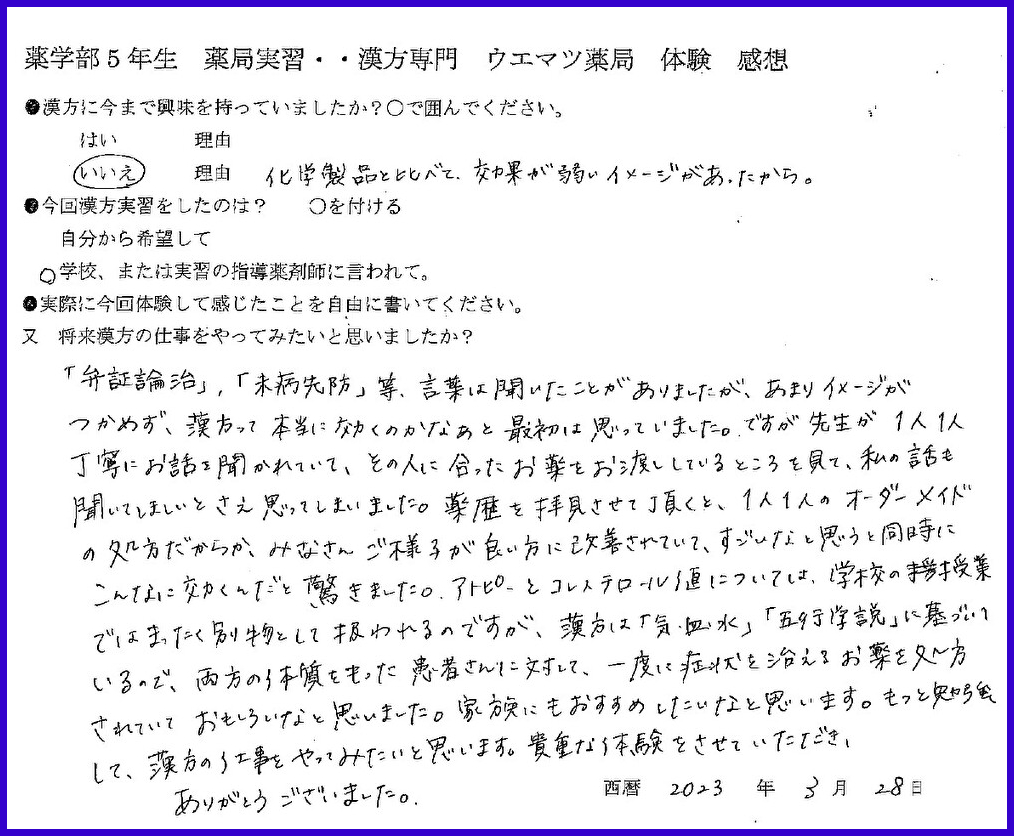 薬学部5年生 薬局実習・・漢方専門 ウエマツ薬局 体験 感想
●漢方に今まで興味を持っていましたか?○で囲んでください。
はい 理由
いいえ 理由 化学製品と比べて、効果が弱いイメージがあったから。
●今回漢方実習をしたのは? ○を付ける
自分から希望して
○学校、または実習の指導薬剤師に言われて。
●実際に今回体験して感じたことを自由に書いてください。
又 将来漢方の仕事をやってみたいと思いましたか?
「弁証論治」,「未病先防」等、言葉は聞いたことがありましたが、あまりイメージが
つかめず、漢方って本当に効くのかなあと最初は思っていました。ですが先生が1人1人
丁寧にお話を聞かれていて、その人に合ったお薬をお渡ししているところを見て、私の話も
聞いてほしいとさえ思ってしまいました。薬歴を拝見させて頂くと、1人1人のオーダーメイド
の処方だからか、みなさんご様子が良い方に改善されていて、すごいなと思うと同時に
こんなに効くんだと驚きました。アトピーとコレステロール値については、学校の授業
ではまったく別物として扱われるのですが、漢方は「気・血・水」「五行学説」に基づいて
いるので、両方の体質をもった患者さんに対して、一度に症状を治えるお薬を処方
されていておもしろいなと思いました。家族にもおすすめしたいなと思います。もっと勉強
して、漢方の仕事をやってみたいと思います。貴重な体験をさせていただき、
ありがとうございました。
西暦 2023 年 3 月 28 日